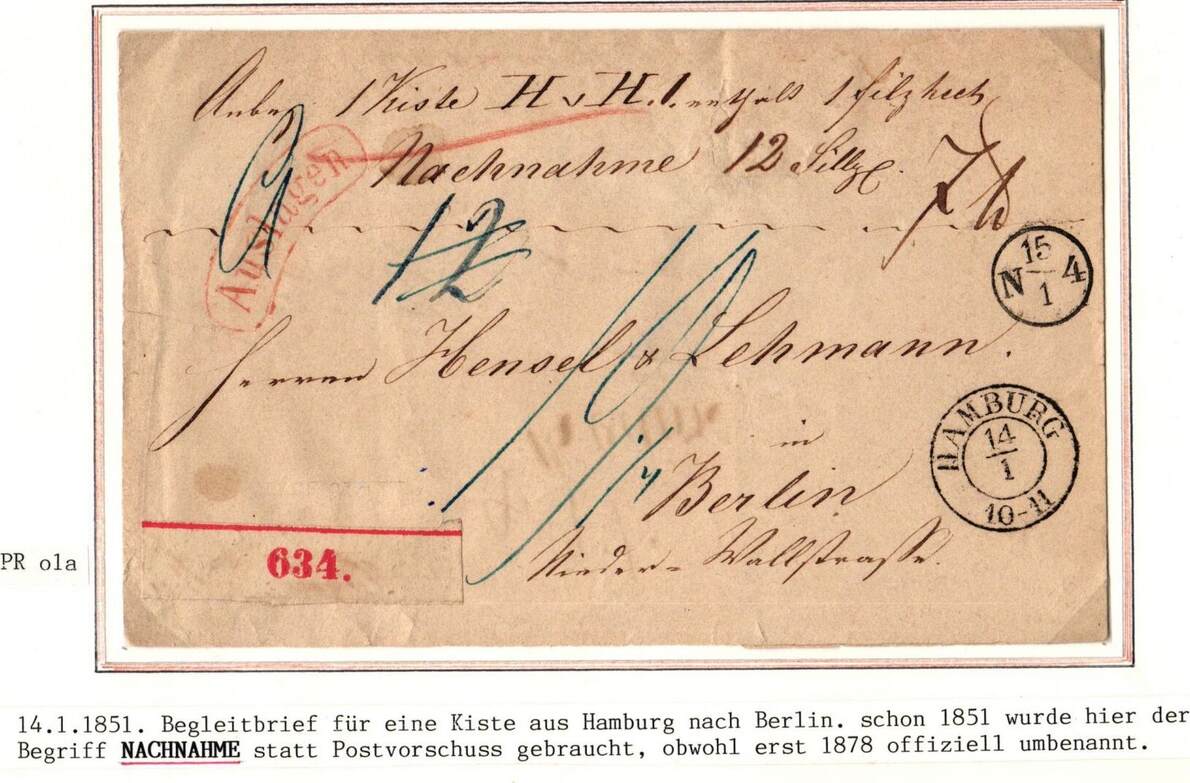 Anbei 1 Kiste H v H. 1. enthält 1 filzhut
Nachnahme 12 Sillg.
Auslagen
9
12
15
N 4
1
Herren Hensel & Lehmann.
in
Berlin
HAMBURG
14
1
10-11
634.
Nieder-Wallstrasse.
PR o1a
14.1.1851. Begleitbrief für eine Kiste aus Hamburg nach Berlin. schon 1851 wurde hier der
Begriff NACHNAHME statt Postvorschuss gebraucht, obwohl erst 1878 offiziell umbenannt.